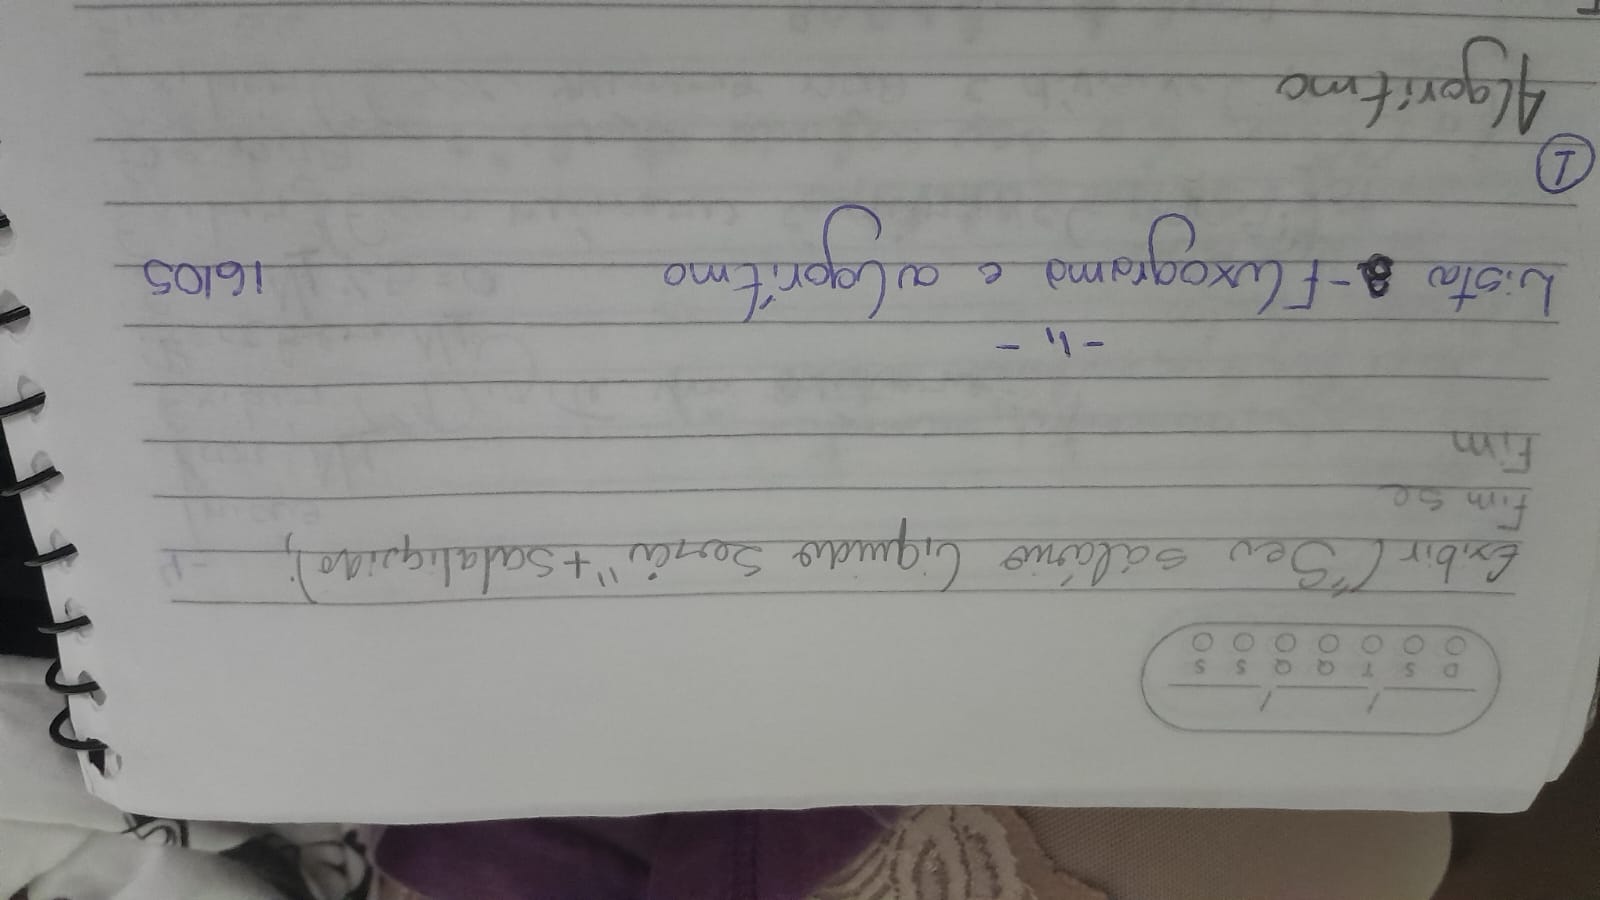 D S T Q Q S S
Exibir ("Seu salário liquido será" + salaliquido);
Fim se
Fim
Lista - Fluxograma e algoritmo 16/05
1
Algoritmo